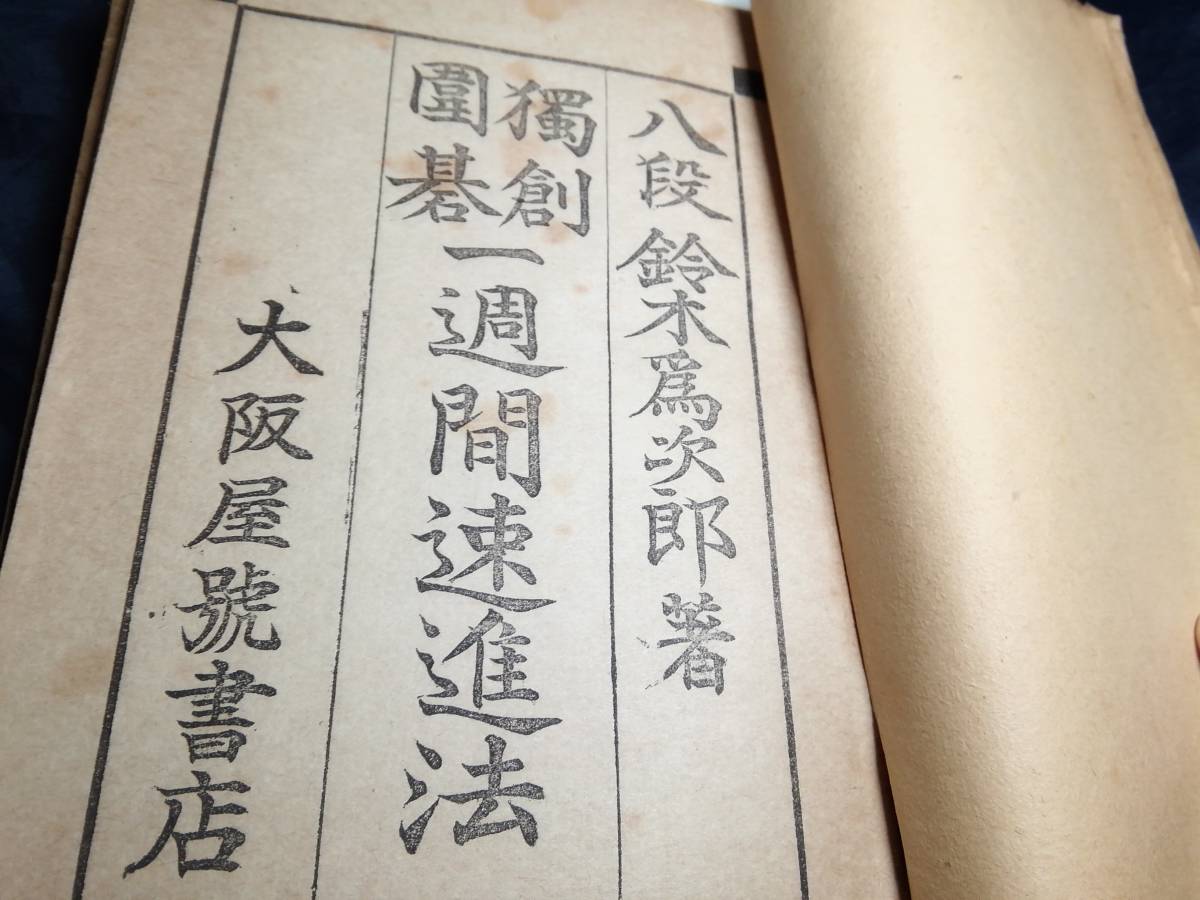 八段 鈴木爲次郎 著
獨創圍碁一週間速進法
大阪屋號書店